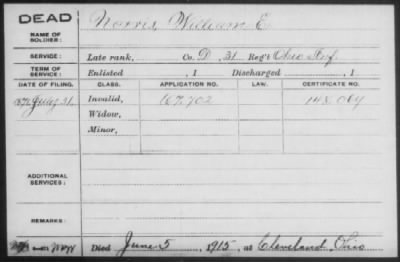 DEAD
NAME OF
SOLDIER:
Norris, William E.
SERVICE:
Late rank, Co. D, 31 Reg't Ohio Inf.
TERM OF
SERVICE:
Enlisted , 1 Discharged , 1
DATE OF FILING. CLASS. APPLICATION NO. LAW. CERTIFICATE NO.
31 Invalid, 167.702 148.069
Widow,
Minor,
ADDITIONAL
SERVICES:
REMARKS:
Died June 5, 1915, at Cleveland, Ohio